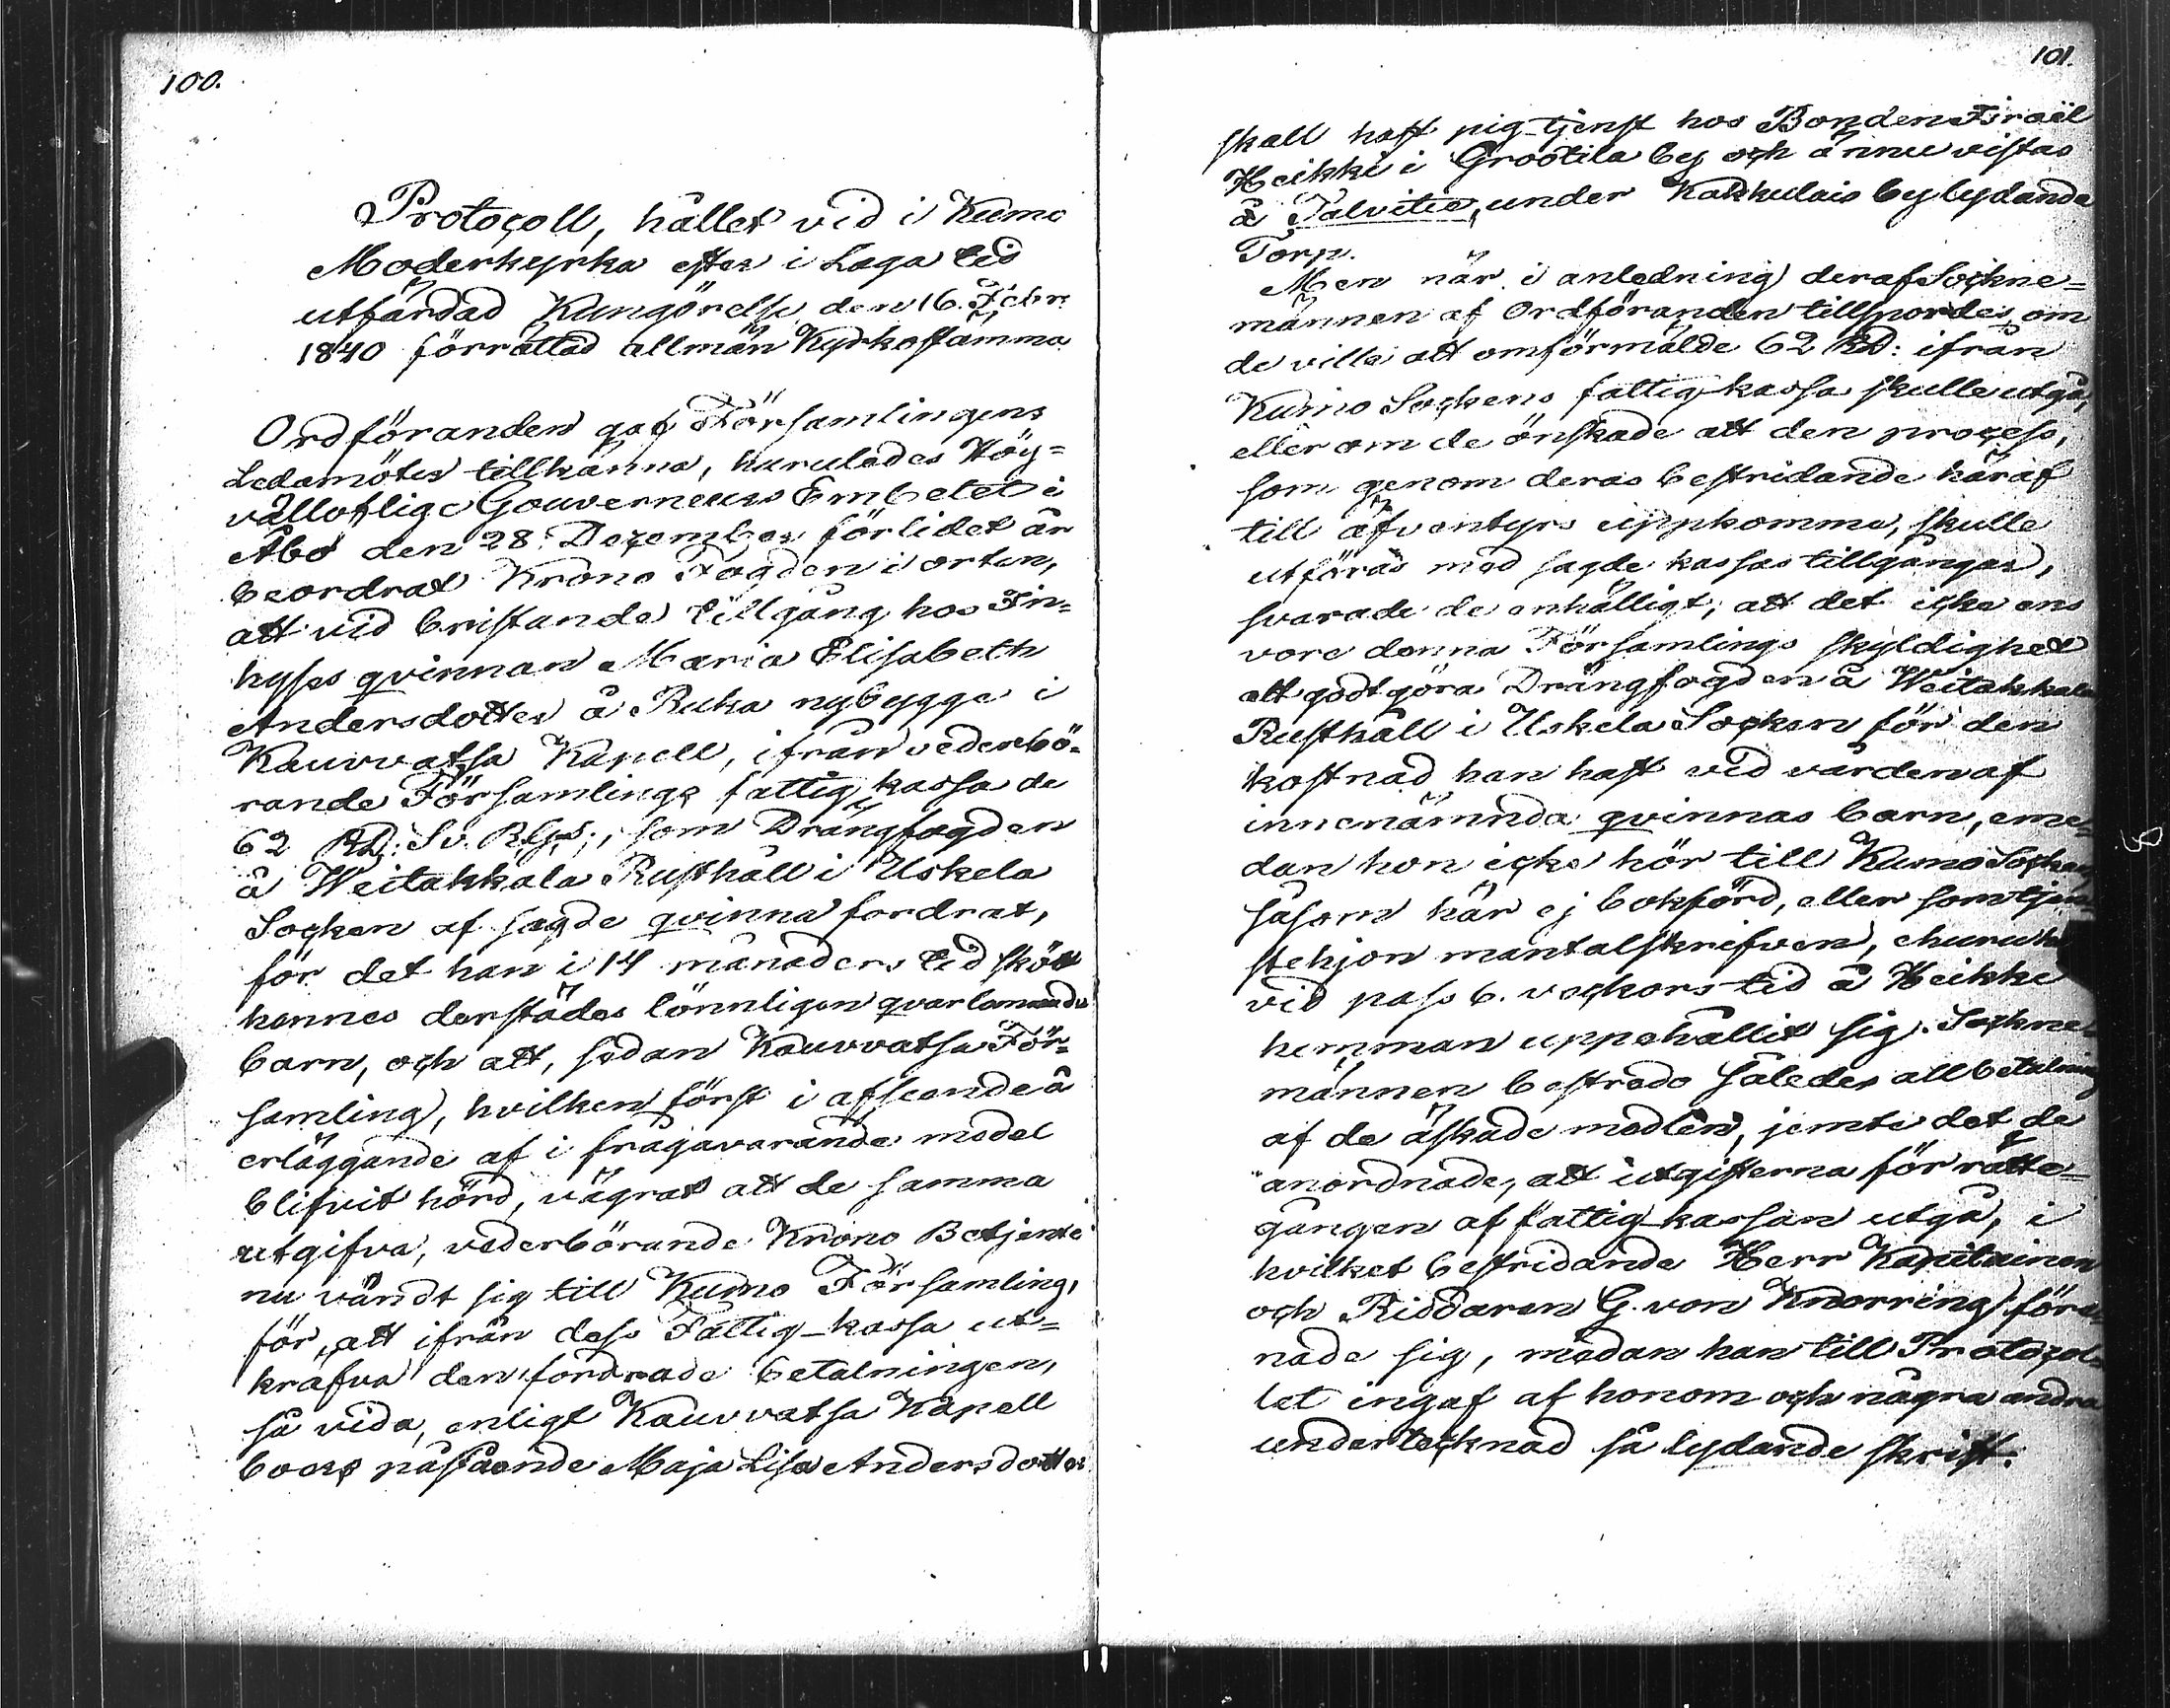 100.
Protocoll, hållet vid i Kumo
Moderkyrka efter i Laga tid
utfärdad Kungörelse den 16. Febr.
1840 förrättad allmän Kyrkostämma
Ordföranden gaf Församlingens
Ledamöter tillkänna, hurulédes Hög=
vällofliga Gouverneurs Embetet i
Åbo den 28. December förlidet år
beordrat Krono Fogden i orten,
att vid bristande tillgång hos In=
hyses qvinnan Maria Elisabeth
Andersdotter å Ruka nybygge i
Kauvvatsa Kapell, ifrån vederbö=
rande Församlings fattig kassa de
62 RD: Sv. Rgs:, som Drängfogden
å Weitakkala Rusthåll i Uskela
Socken af sagde qvinna fordrat,
för det han i 14 månaders tid skött
hennes derstädes lönnligen qvarlemnade
barn, och att, sedan Kauvvatsa För=
samling, hvilken först i afseende å
erläggande af i frågavarande medel
blifvit hörd, vägrat att de samma
utgifva, vederbörande Krono Betjente
nu vändt sig till Kumo Församling,
för att ifrån dess Fattig-kassa ut=
kräfva den fordrade betalningen,
så vida, enligt Kauvvatsa Kapell
boers påstående Maja Lisa Andersdotter
101.
skall haft pig tjenst hos Bonden Israël
Heikki i Grootila by och ännu vistas
å Talvitie, under Kakkulais by lydande
Torp.
Men när i anledning deraf Sockne=
männen af Ordföranden tillspordes, om
de ville att omförmälde 62 RD: ifrån
Kumo Sockens fattig-kassa skulle utgå,
eller om de önskade att den process,
som genom deras bestridande häraf
till äfventyrs uppkomme, skulle
utföras med sagde kassas tillgångar,
svarade de enhälligt, att det icke ens
vore denna Församlings skyldighet
att godtgöra Drängfogden å Weitakkala
Rusthåll i Uskela Socken för den
kostnad han haft vid vården af
innenämnda qvinnas barn, eme=
dan hon icke hör till Kumo Socken,
såsom här ej bokförd, eller som tjen
stehjon mantalskrifven, ehuru hon
vid pass 6. veckors tid å Heikki
hemman uppehållit sig. Sockne=
männen bestredo således all betalning
af de äskade medlen, jemte det de
anordnade, att utgifterna för rätte=
gången af fattig-kassan utgå, i
hvilket bestridande Herr Kapitainen
och Riddaren G. von Knorring före=
nade sig, medan han till Protocol=
let ingaf af honom och några andra
undertecknad så lydande skrift: